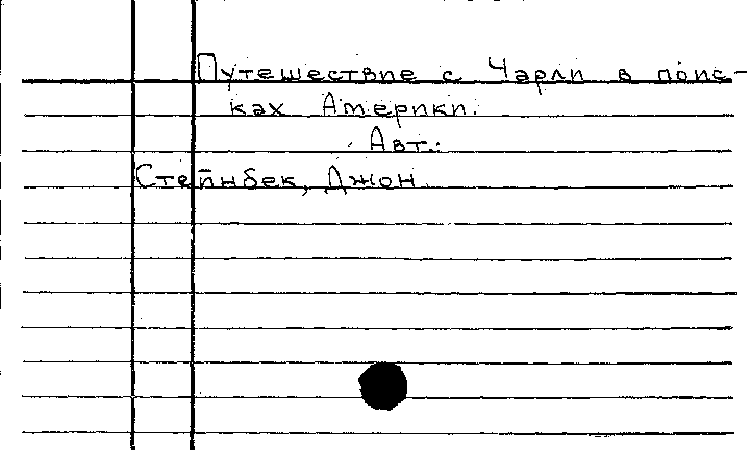 Путешествие с Чарли в поис-
ках Америки.
Авт.:
Стейнбек, Джон.